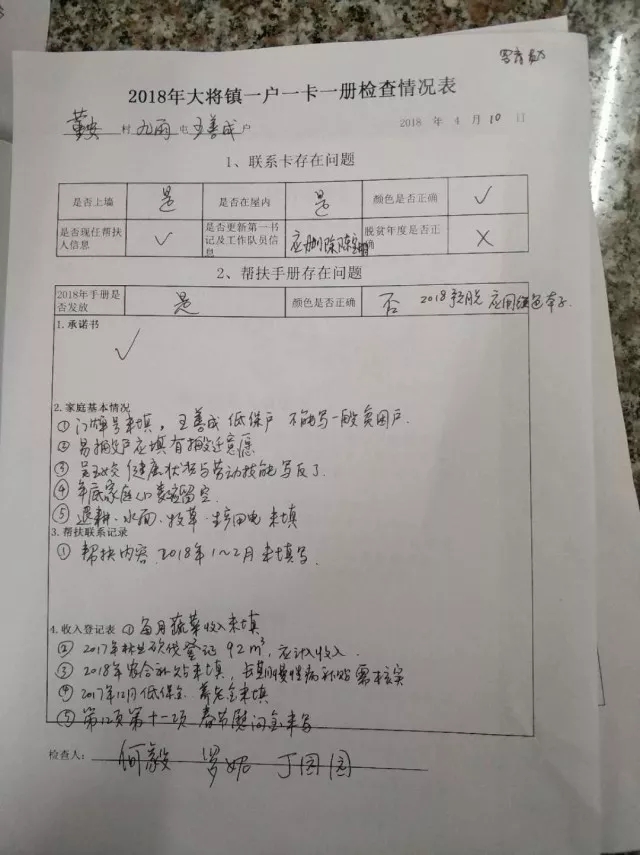 2018年大将镇一户一卡一册检查情况表
村 九雨 屯 王善成 户
2018 年 4 月 10 日
1、联系卡存在问题
是否上墙 是 是否在屋内 是 颜色是否正确 ✓
是否现任帮扶人信息 ✓ 是否更新第一书记及工作队员信息 应删除陈 脱贫年度是否正确 X
2、帮扶手册存在问题
2018年手册是否发放 是 颜色是否正确 否 2018预脱 应用 色本子.
1.承诺书
✓
2.家庭基本情况
① 门牌号未填。王善成低保户 不能写一般贫困户.
② 易搬户应填有搬迁意愿
③ 健康状况与劳动技能写反了.
④ 年底家庭人口 留空.
⑤ 退耕、水面、牧草、生产用电未填
3.帮扶联系记录
① 帮扶内容, 2018年1~2月未填写.
4.收入登记表 ① 每月蔬菜收入未填
② 2017年林业砍伐登记 92m³, 应计入收入.
③ 2018年农合补贴未填, 长期慢性病补贴需核实
④ 2017年12月低保金、养老金未填
⑤ 第12页第十一项 春节慰问金未写
检查人: 何毅 罗 丁园园